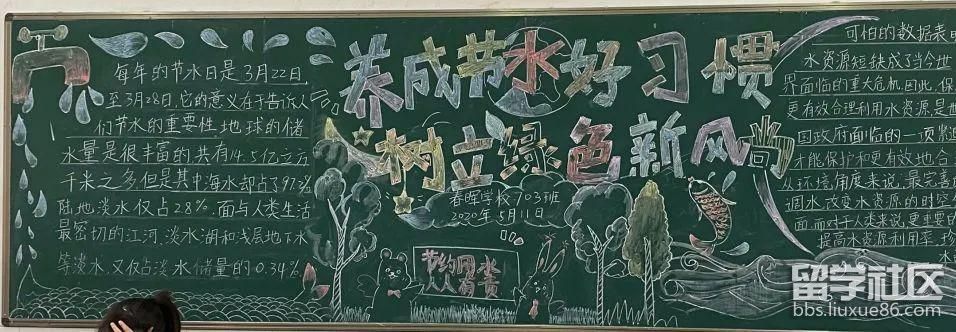 每年的节水日是3月22日,
至3月28日,它的意义在于告诉人
们节水的重要性,地球的储
水量是很丰富的,共有14.5亿立方
千米之多但是其中海水却占了97.3%
陆地淡水仅占2.8%,面与人类生活
最密切的江河、淡水湖和浅层地下水
等淡水,又仅占淡水储量的0.34%
养成节水好习惯
树立绿色新风尚
春晖学校703班
2020年5月11日
节约用水
人人有责
可怕的数据表明
水资源短缺成了当今世
界面临的重大危机,因此,保
更有效合理利用水资源,是
因政府面临的一项紧迫
才能保护和更有效地合
从环境角度来说,最完善
调水,改变水资源的时空
面,而对于人类来说,更重要的
提高水资源利用率,
留学社区
bbs.liuxue86.com